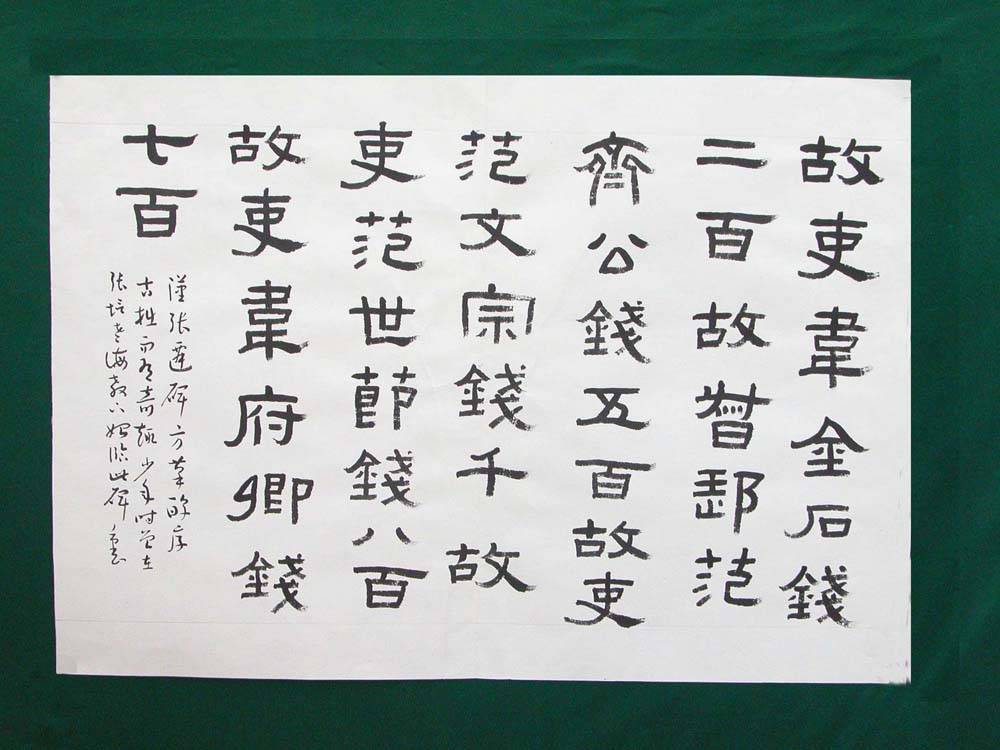 故吏韋金石錢
二百故督郵范
齊公錢五百故吏
范文宗錢千故
吏范世節錢八百
故吏韋府卿錢
七百
漢張遷碑方茂醇厚
古拙而有奇趣少年時曾在
張培老海教下始臨此碑